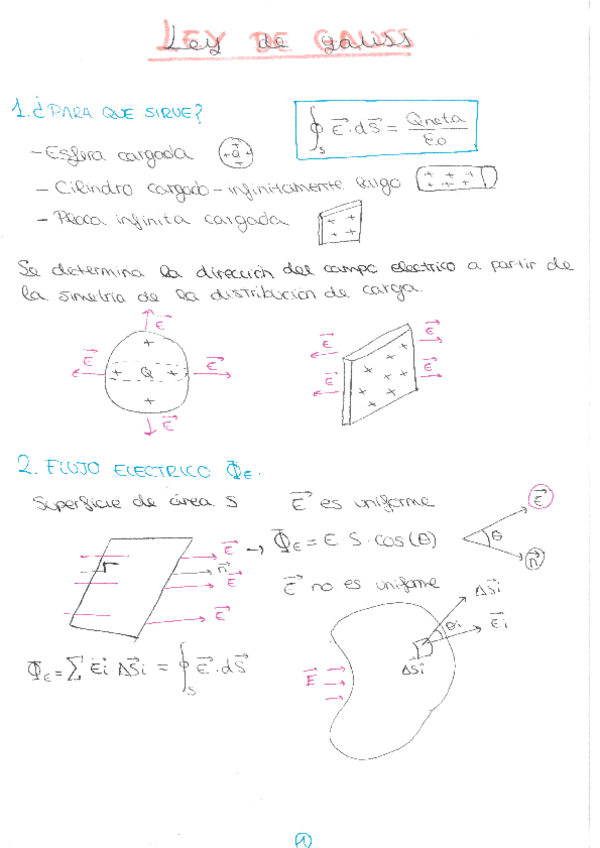 LEY DE GAUSS
1. ¿PARA QUE SIRVE?
∮s E⃗·dS⃗ = Qneta/ε0
- Esfera cargada
+Q+
- Cilindro cargado - infinitamente largo
+ + +
+ + +
- Placa infinita cargada
+ +
+ +
Se determina la dirección del campo electrico a partir de
la simetria de la distribución de carga.
E⃗
E⃗ + Q + E⃗
+
E⃗
E⃗ E⃗
E⃗ E⃗
2. FLUJO ELECTRICO ΦE.
Superficie de área S E⃗ es uniforme
E⃗ → ΦE = E S·cos(θ)
n⃗
E⃗
E⃗
E⃗
θ
n⃗
E⃗ no es uniforme
ΔS⃗i
θi E⃗i
ΔSi
E⃗
ΦE = ∑ E⃗i ΔS⃗i = ∮s E⃗·dS⃗
1